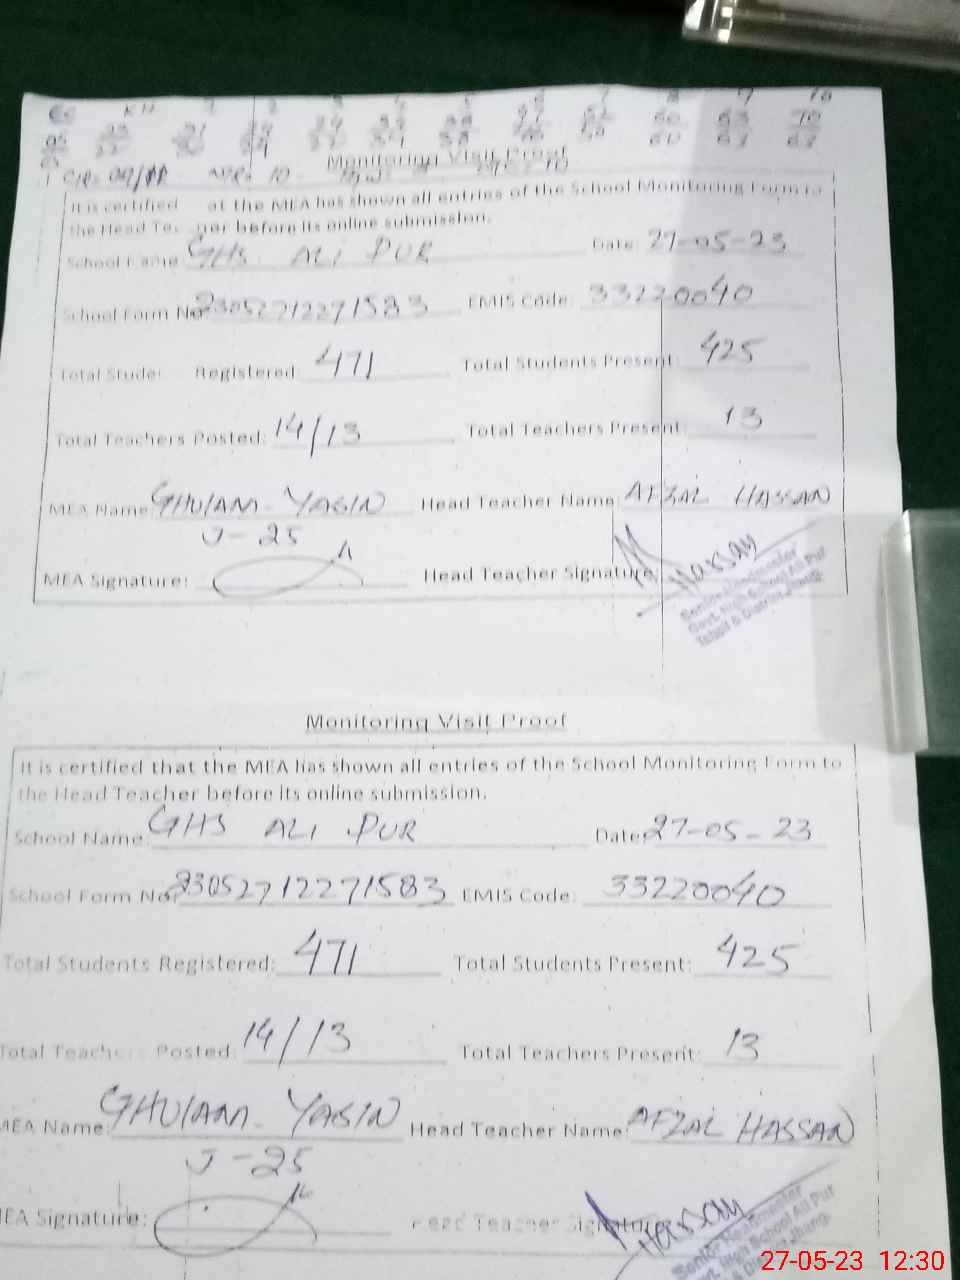 KH 7 8 9 10
Monitoring Visit Proof
It is certified at the MEA has shown all entries of the School Monitoring Form to
the Head Tea ner before its online submission.
School Name: GHS ALI PUR Date: 27-05-23
School Form No: 23052712271583 EMIS Code: 33220040
Total Stude Registered: 471 Total Students Present: 425
Total Teachers Posted: 14/13 Total Teachers Present: 13
MEA Name: GHULAM YASIN Head Teacher Name: AFZAL HASSAN
J-25
MEA Signature: Head Teacher Signature: Hassan
Senior Headmaster
Govt. High School Ali Pur
Tehsil & District Jhang
Monitoring Visit Proof
It is certified that the MEA has shown all entries of the School Monitoring Form to
the Head Teacher before its online submission.
School Name: GHS ALI PUR Date: 27-05-23
School Form No: 23052712271583 EMIS Code: 33220040
Total Students Registered: 471 Total Students Present: 425
Total Teachers Posted: 14/13 Total Teachers Present: 13
MEA Name: GHULAM YASIN Head Teacher Name: AFZAL HASSAN
J-25
MEA Signature: Head Teacher Signature Hassan
Senior Headmaster
Govt. High School Ali Pur
& District Jhang
27-05-23 12:30